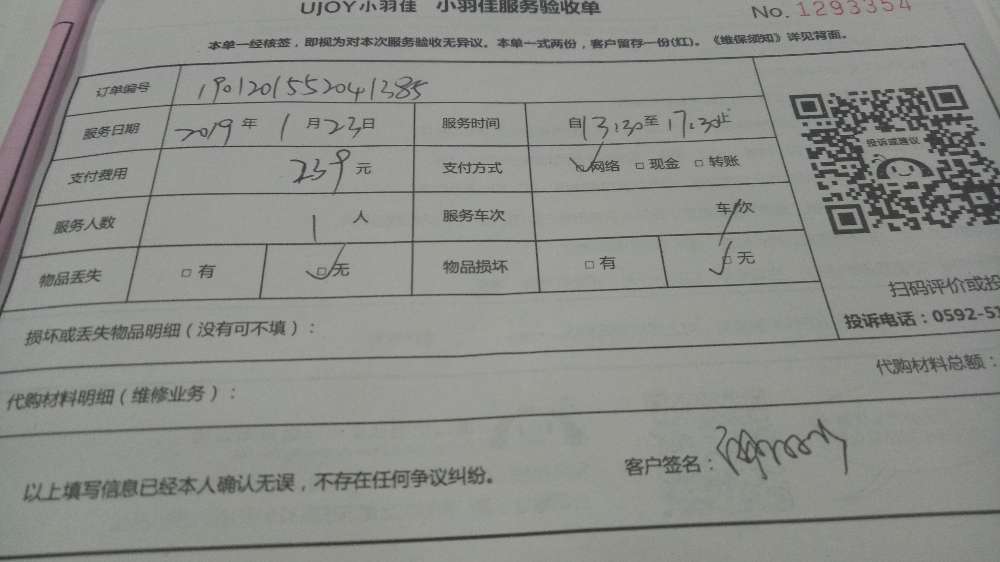 UJOY小羽佳 小羽佳服务验收单
No. 1293354
本单一经核签，即视为对本次服务验收无异议。本单一式两份，客户留存一份(红)。《维保须知》详见背面。
订单编号 1901201552041385
服务日期 2019 年 1 月 23 日 服务时间 自 13:30 至 17:30 止
支付费用 239 元 支付方式 ☑网络 □现金 □转账
服务人数 1 人 服务车次 / 车/次
物品丢失 □有 ☑无 物品损坏 □有 ☑无
投诉或建议
扫码评价或投
投诉电话：0592-51
损坏或丢失物品明细（没有可不填）：
代购材料明细（维修业务）：
代购材料总额：
以上填写信息已经本人确认无误，不存在任何争议纠纷。
客户签名：